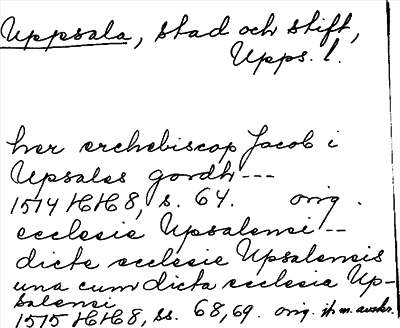 Uppsala, stad och stift,
Upps. l.
her erchebiscop Jacob i
Upsales gordh ---
1514 HH 8, s. 64. orig.
ecclesie Upsalensi --
dicte ecclesie Upsalensis
una cum dicta ecclesia Up-
salensi
1515 HH 8, ss. 68, 69. orig. jt m. avskr.